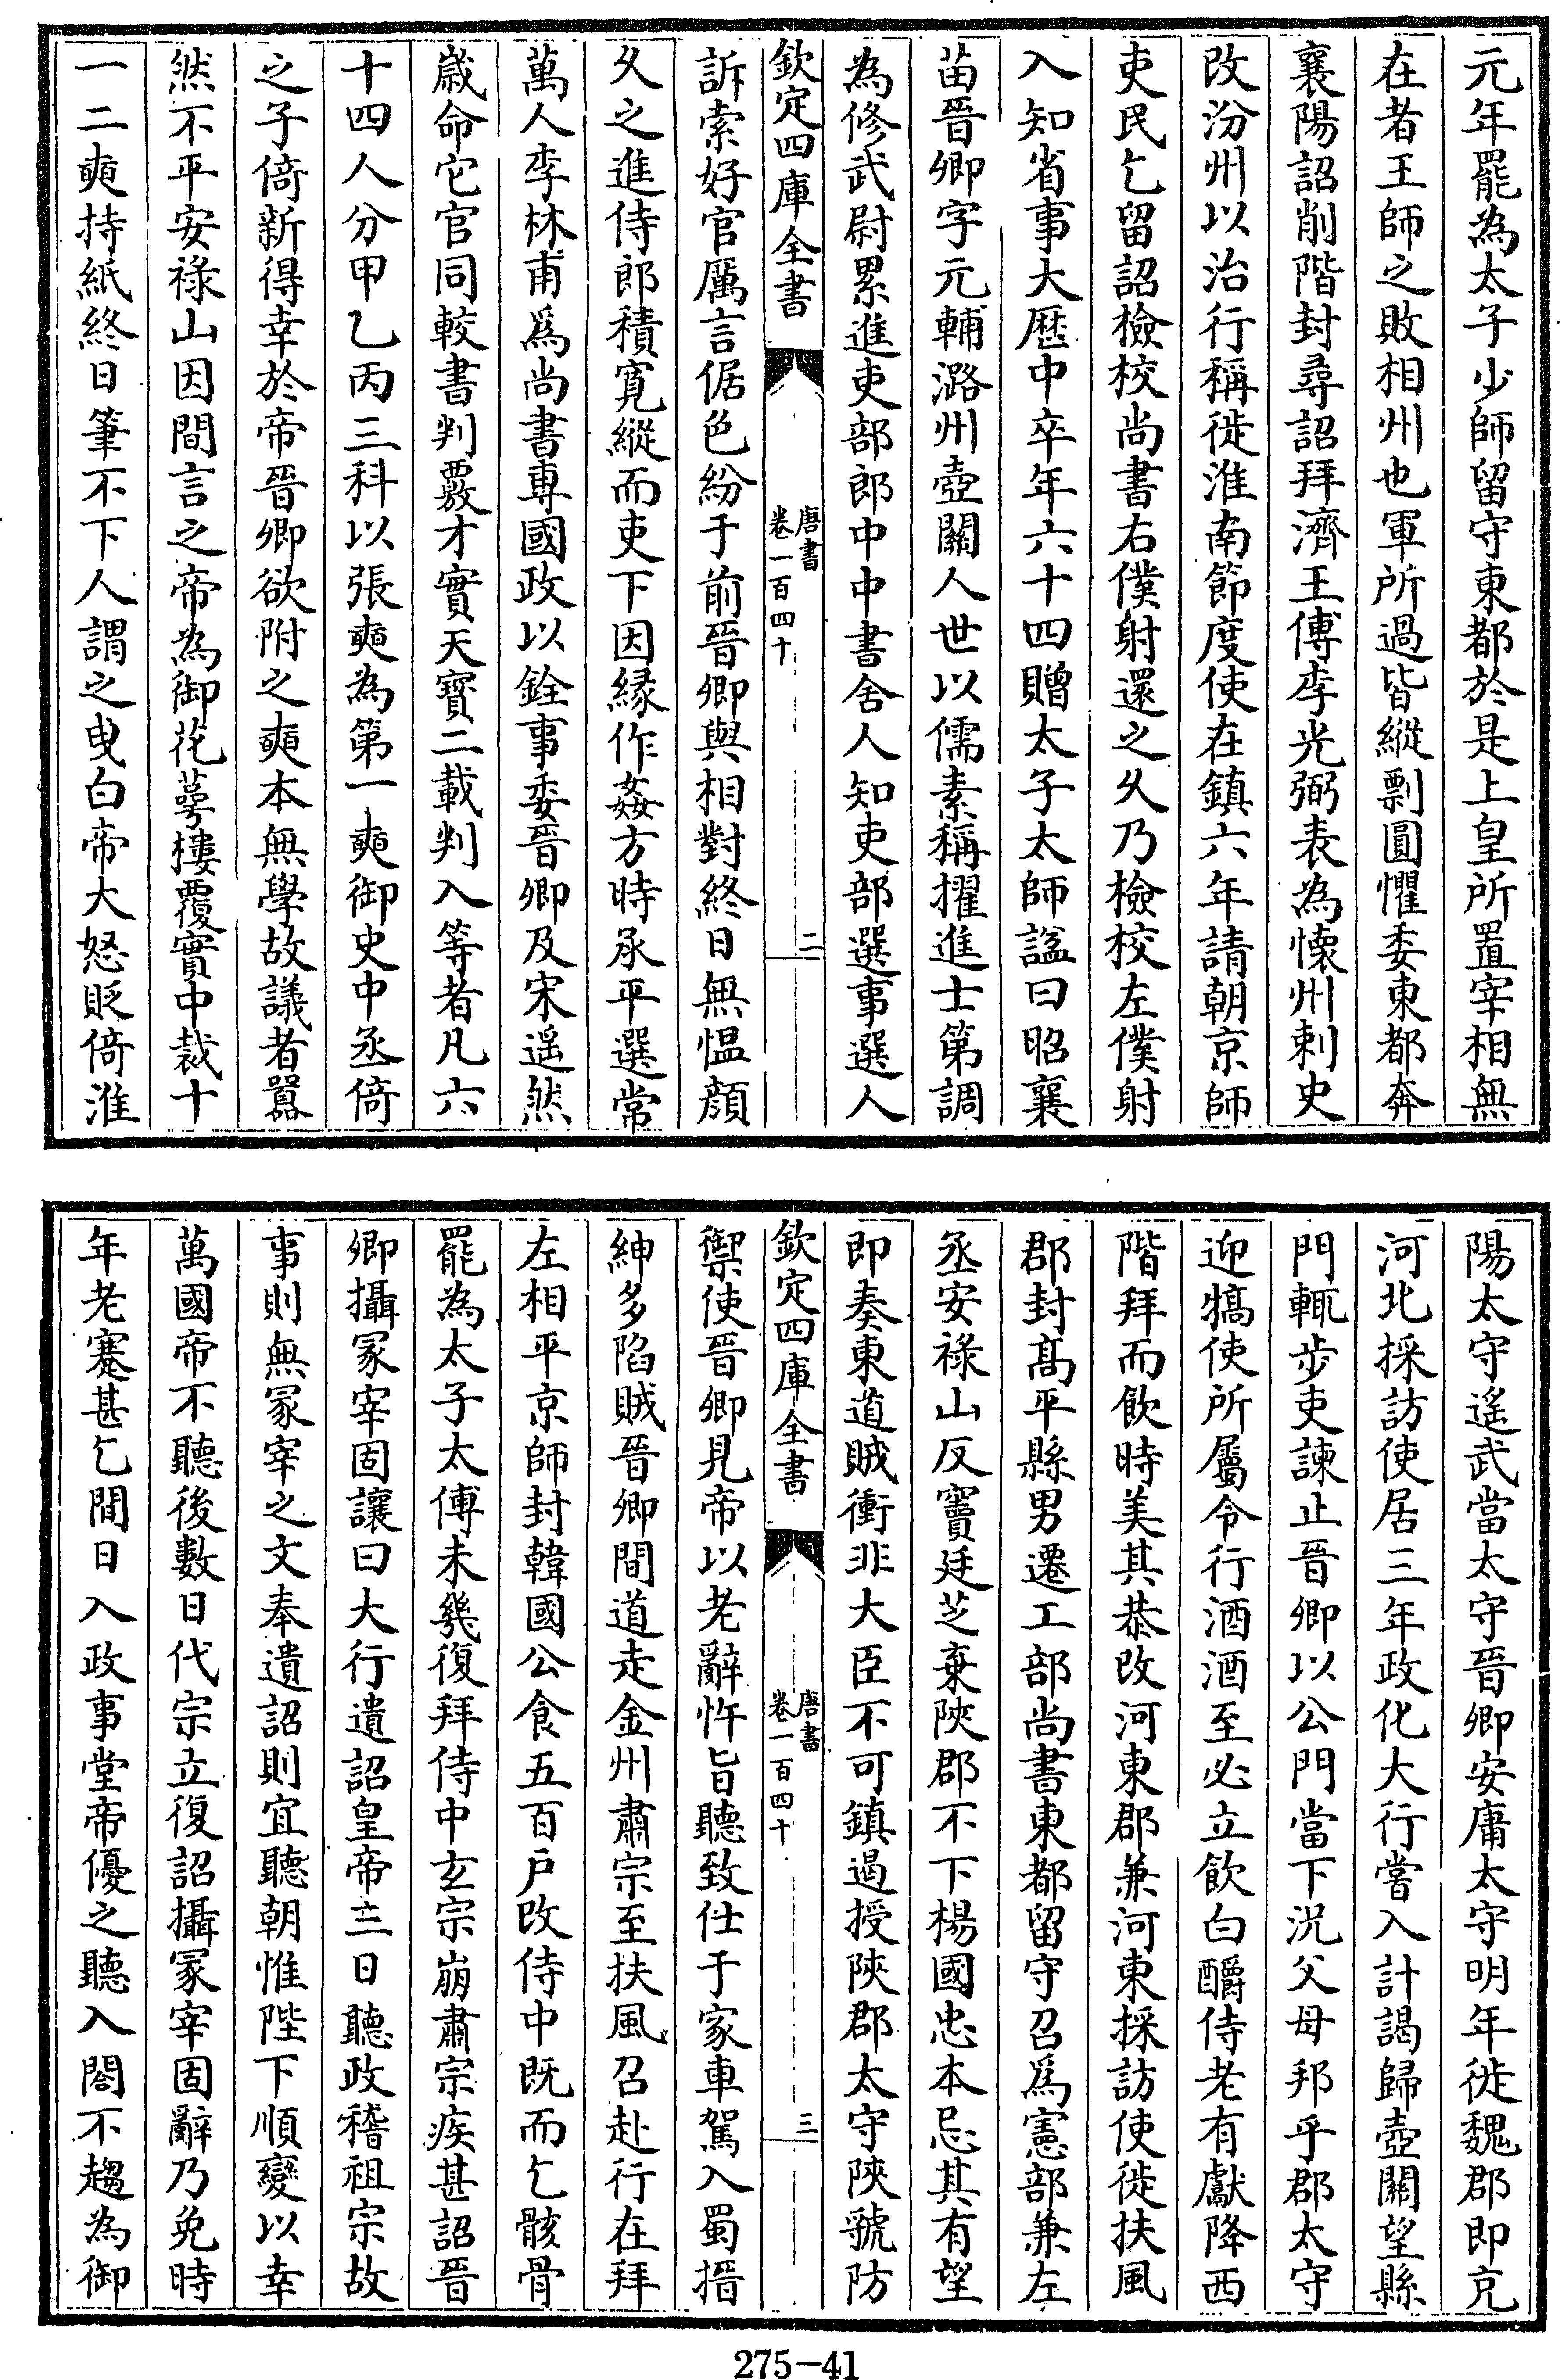 元年罷為太子少師留守東都於是上皇所置宰相無
在者王師之敗相州也軍所過皆縱剽圓懼委東都奔
襄陽詔削階封尋詔拜濟王傅李光弼表為懷州刺史
改汾州以治行稱徙淮南節度使在鎮六年請朝京師
吏民乞留詔檢校尚書右僕射還之久乃檢校左僕射
入知省事大厯中卒年六十四贈太子太師諡曰昭襄
苗晉卿字元輔潞州壺關人世以儒素稱擢進士第調
為修武尉累進吏部郎中中書舍人知吏部選事選人
欽定四庫全書
唐書
卷一百四十
二
訴索好官厲言倨色紛于前晉卿與相對終日無愠顔
久之進侍郎積寛縱而吏下因縁作姦方時承平選常
萬人李林甫爲尚書專國政以銓事委晉卿及宋遥然
歲命它官同較書判覈才實天寶二載判入等者凡六
十四人分甲乙丙三科以張奭為第一奭御史中丞倚
之子倚新得幸於帝晉卿欲附之奭本無學故議者囂
然不平安禄山因間言之帝為御花萼樓覆實中裁十
一二奭持紙終日筆不下人謂之曳白帝大怒貶倚淮
陽太守遙武當太守晉卿安康太守明年徙魏郡即充
河北採訪使居三年政化大行嘗入計謁歸壺關望縣
門輒步吏諫止晉卿以公門當下況父母邦乎郡太守
迎犒使所屬令行酒酒至必立飲白釂侍老有獻降西
階拜而飲時美其恭改河東郡兼河東採訪使徙扶風
郡封髙平縣男遷工部尚書東都留守召爲憲部兼左
丞安禄山反竇廷芝棄陜郡不下楊國忠本忌其有望
即奏東道賊衝非大臣不可鎮遏授陜郡太守陜虢防
欽定四庫全書
唐書
卷一百四十
三
禦使晉卿見帝以老辭忤旨聽致仕于家車駕入蜀搢
紳多陷賊晉卿間道走金州肅宗至扶風召赴行在拜
左相平京師封韓國公食五百户改侍中既而乞骸骨
罷為太子太傅未幾復拜侍中玄宗崩肅宗疾甚詔晉
卿攝冡宰固讓曰大行遺詔皇帝三日聽政稽祖宗故
事則無冡宰之文奉遺詔則宜聽朝惟陛下順變以幸
萬國帝不聽後數日代宗立復詔攝冡宰固辭乃免時
年老蹇甚乞間日入政事堂帝優之聽入閤不趨為御
275-41